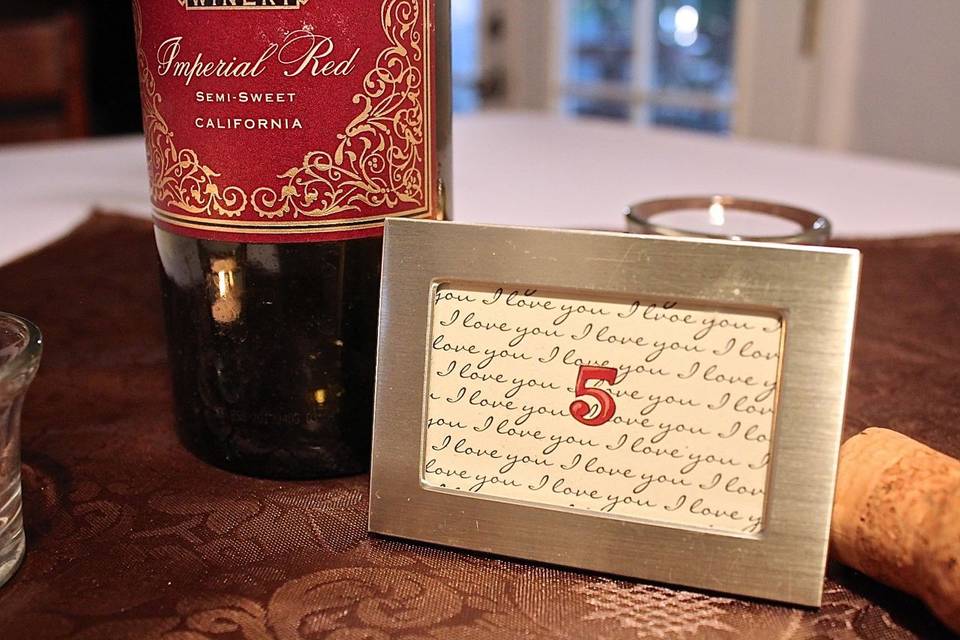 WINERY
Imperial Red
SEMI-SWEET
CALIFORNIA
you I love you I love you I
I love you I love you I lov
love you I love you I love y
I love you love you I lov
I love you love you I lov
5
you I love you I love you I
I love you I love you I lov
love you I love you I love y